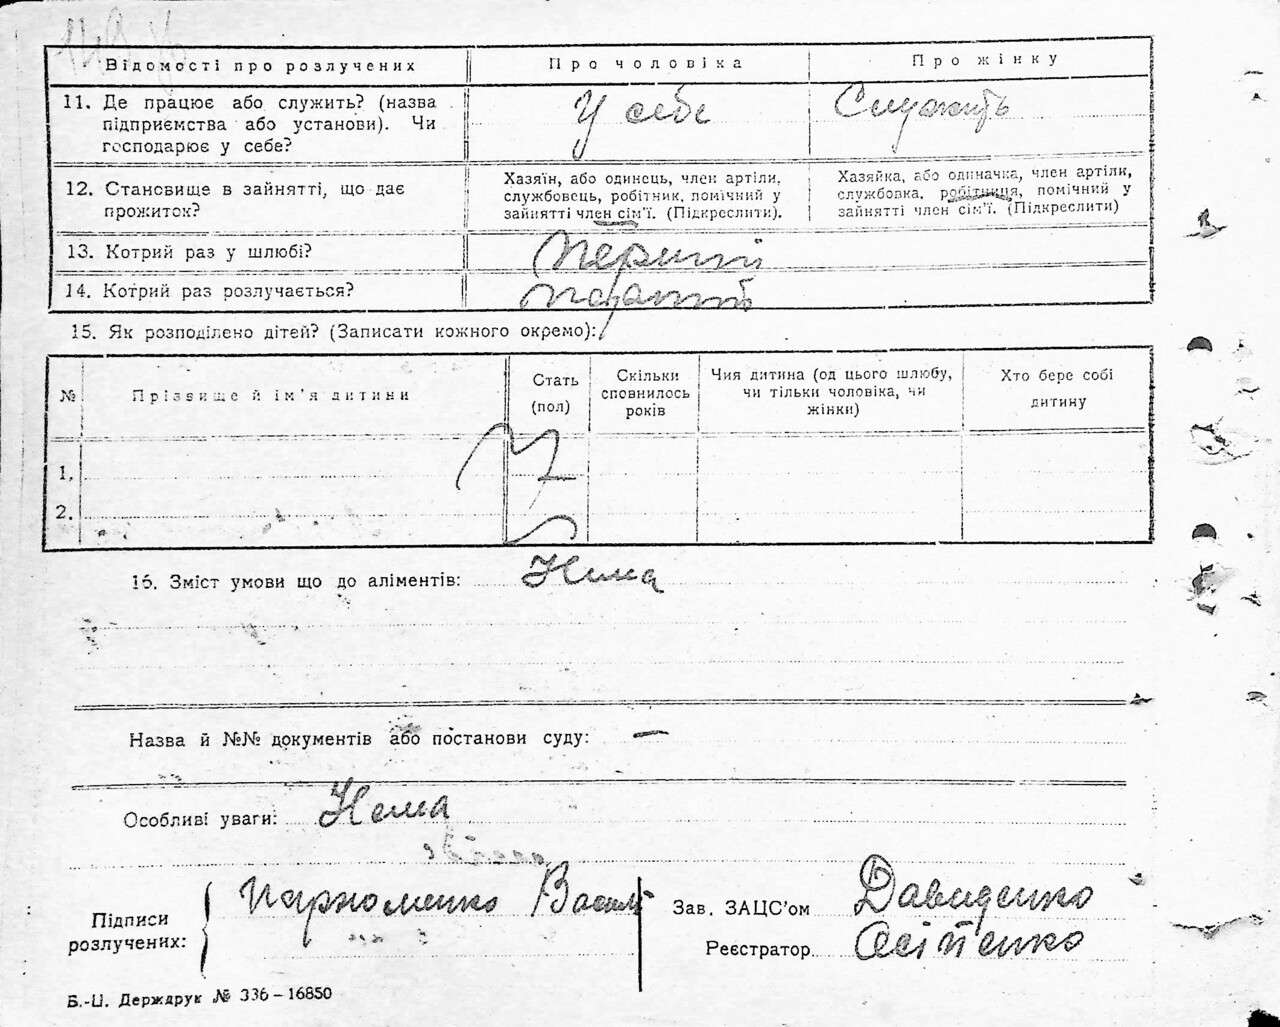 Відомості про розлучених Про чоловіка Про жінку
11. Де працює або служить? (назва підприємства або установи). Чи господарює у себе?
У себе
Служить
12. Становище в зайнятті, що дає прожиток?
Хазяїн, або одинець, член артілі, службовець, робітник, помічний у зайнятті член сім'ї. (Підкреслити).
Хазяйка, або одиначка, член артіли, службовка, робітниця, помічний у зайнятті член сім'ї. (Підкреслити)
13. Котрий раз у шлюбі?
Перший
14. Котрий раз розлучається?
15. Як розподілено дітей? (Записати кожного окремо):
№ Прізвище й ім'я дитини Стать (пол) Скільки сповнилось років Чия дитина (од цього шлюбу, чи тільки чоловіка, чи жінки) Хто бере собі дитину
1.
2.
16. Зміст умови що до аліментів: Нема
Назва й №№ документів або постанови суду: —
Особливі уваги: Нема
Підписи розлучених: Пархоменко Василь
Зав. ЗАЦС'ом Давиденко
Реєстратор Осіпенко
Б.-Ц. Держдрук № 336–16850